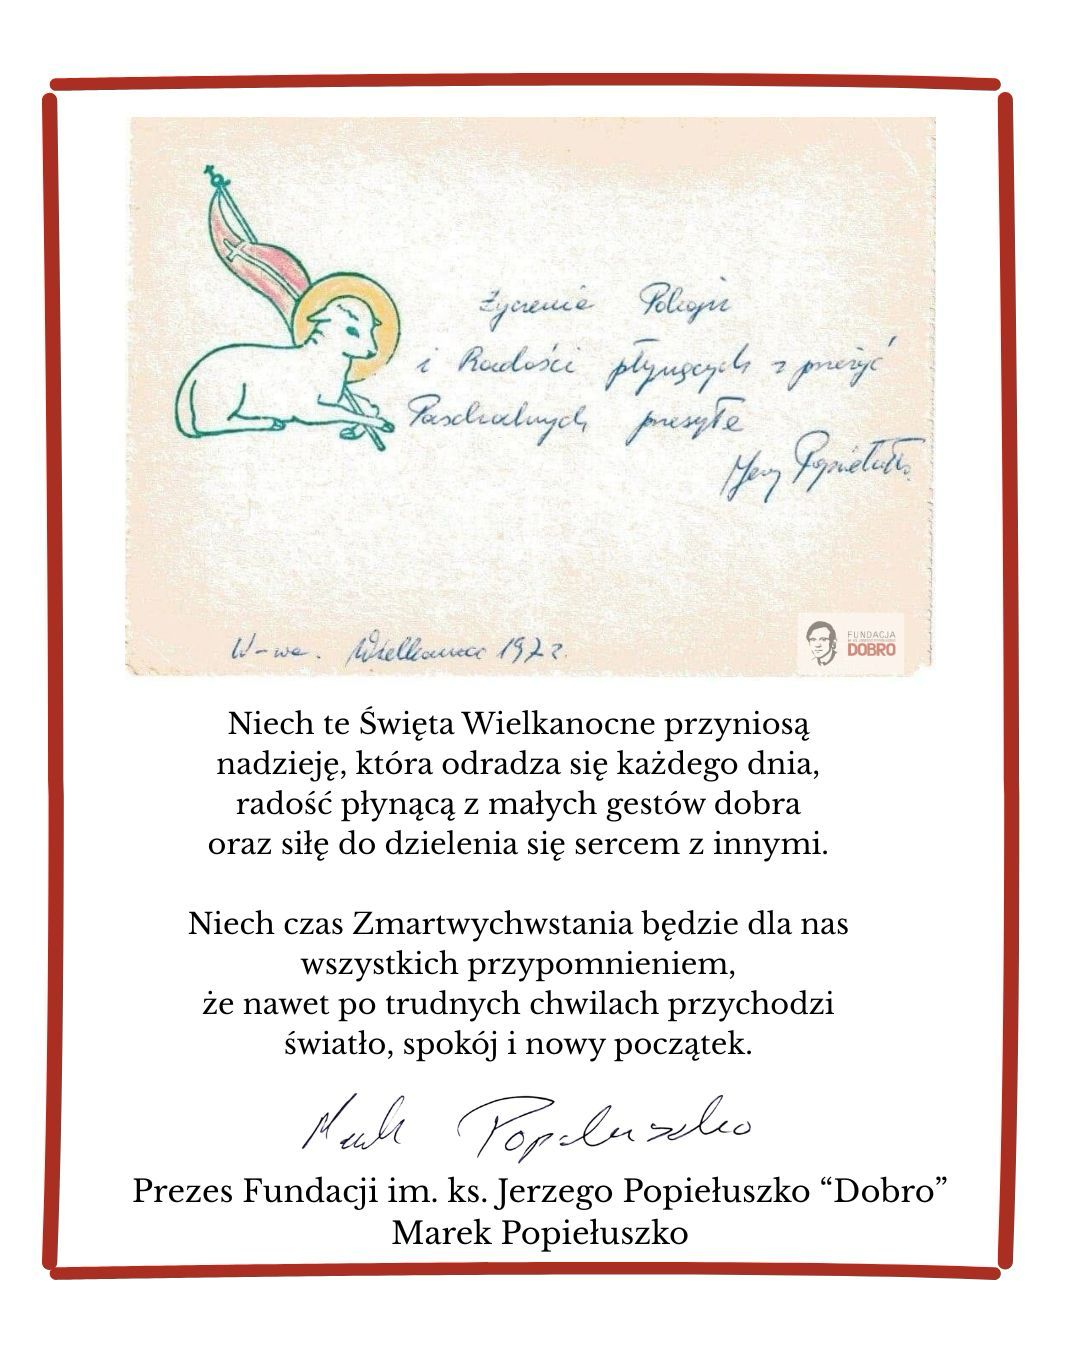 Życzenia Pokoju
i Radości płynących z przeżyć
Paschalnych przesyła
Jerzy Popiełuszko
W-wa. Wielkanoc 1972.
FUNDACJA
DOBRO
Niech te Święta Wielkanocne przyniosą
nadzieję, która odradza się każdego dnia,
radość płynącą z małych gestów dobra
oraz siłę do dzielenia się sercem z innymi.
Niech czas Zmartwychwstania będzie dla nas
wszystkich przypomnieniem,
że nawet po trudnych chwilach przychodzi
światło, spokój i nowy początek.
Marek Popiełuszko
Prezes Fundacji im. ks. Jerzego Popiełuszko “Dobro”
Marek Popiełuszko